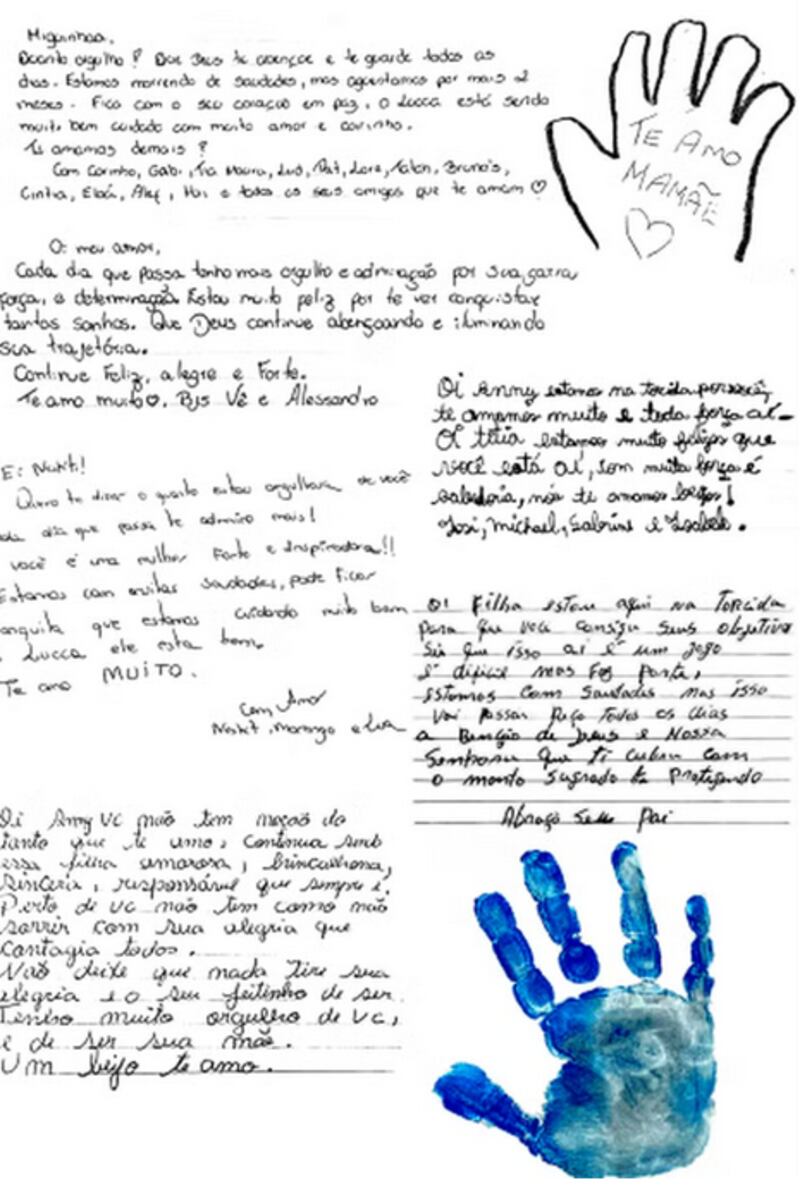 Miguinhaa,
Quanto orgulho! Que Deus te abençoe e te guarde todos os
dias. Estamos morrendo de saudades, mas aguentamos por mais 2
meses. Fica com o seu coração em paz, o Lucca está sendo
muito bem cuidado com muito amor e carinho.
Te amamos demais!
Com Carinho, Gabi, Tia Maura, Luis, Pat, Lara, Bruna's,
Cintia, Eloá, Alef, e todos os seus amigos que te amam ♡
TE AMO
MAMÃE
Oi meu amor,
Cada dia que passa tenho mais orgulho e admiração por sua garra
força, e determinação. Estou muito feliz por te ver conquistar
tantos sonhos. Que Deus continue abençoando e iluminando
sua trajetória.
Continue Feliz, alegre e Forte.
Te amo muito♡. Bjs Vê e Alessandro
Oi Anny estamos na torcida por você,
te amamos muito e toda força aí-
Oi titia estamos muito felizes que
você está aí, com muita força é
sabedoria, nós te amamos beijos!
Josi, Michael, Sabrina e Izabela.
E:
Quero te dizer o quanto estou orgulhosa de você
da dia que passa te admiro mais!
você é uma mulher Forte e Inspiradora!!
Estamos com muitas saudades, pode ficar
anquila que estamos cuidando muito bem
Lucca ele esta bem.
Te amo MUITO.
Com Amor
Morango e Lua
Oi Filha estou aqui na Torcida
para que voce consiga seus objetivo
Sei que isso ai é um jogo
é dificil mas Faz parte,
estamos com saudades mas isso
vai passar peço todos os dias
a Benção de Deus e Nossa
Senhora que ti cubra com
o manto sagrado te protegendo
Abraço seu Pai
Oi Anny vc não tem noção do
tanto que te amo, continua sendo
essa filha amorosa, brincalhona,
sincera, responsável que sempre é.
Perto de vc não tem como não
sorrir com sua alegria que
contagia todos.
Não deixe que nada tire sua
alegria e o seu jeitinho de ser.
Tenho muito orgulho de vc,
e de ser sua mãe.
Um beijo te amo.